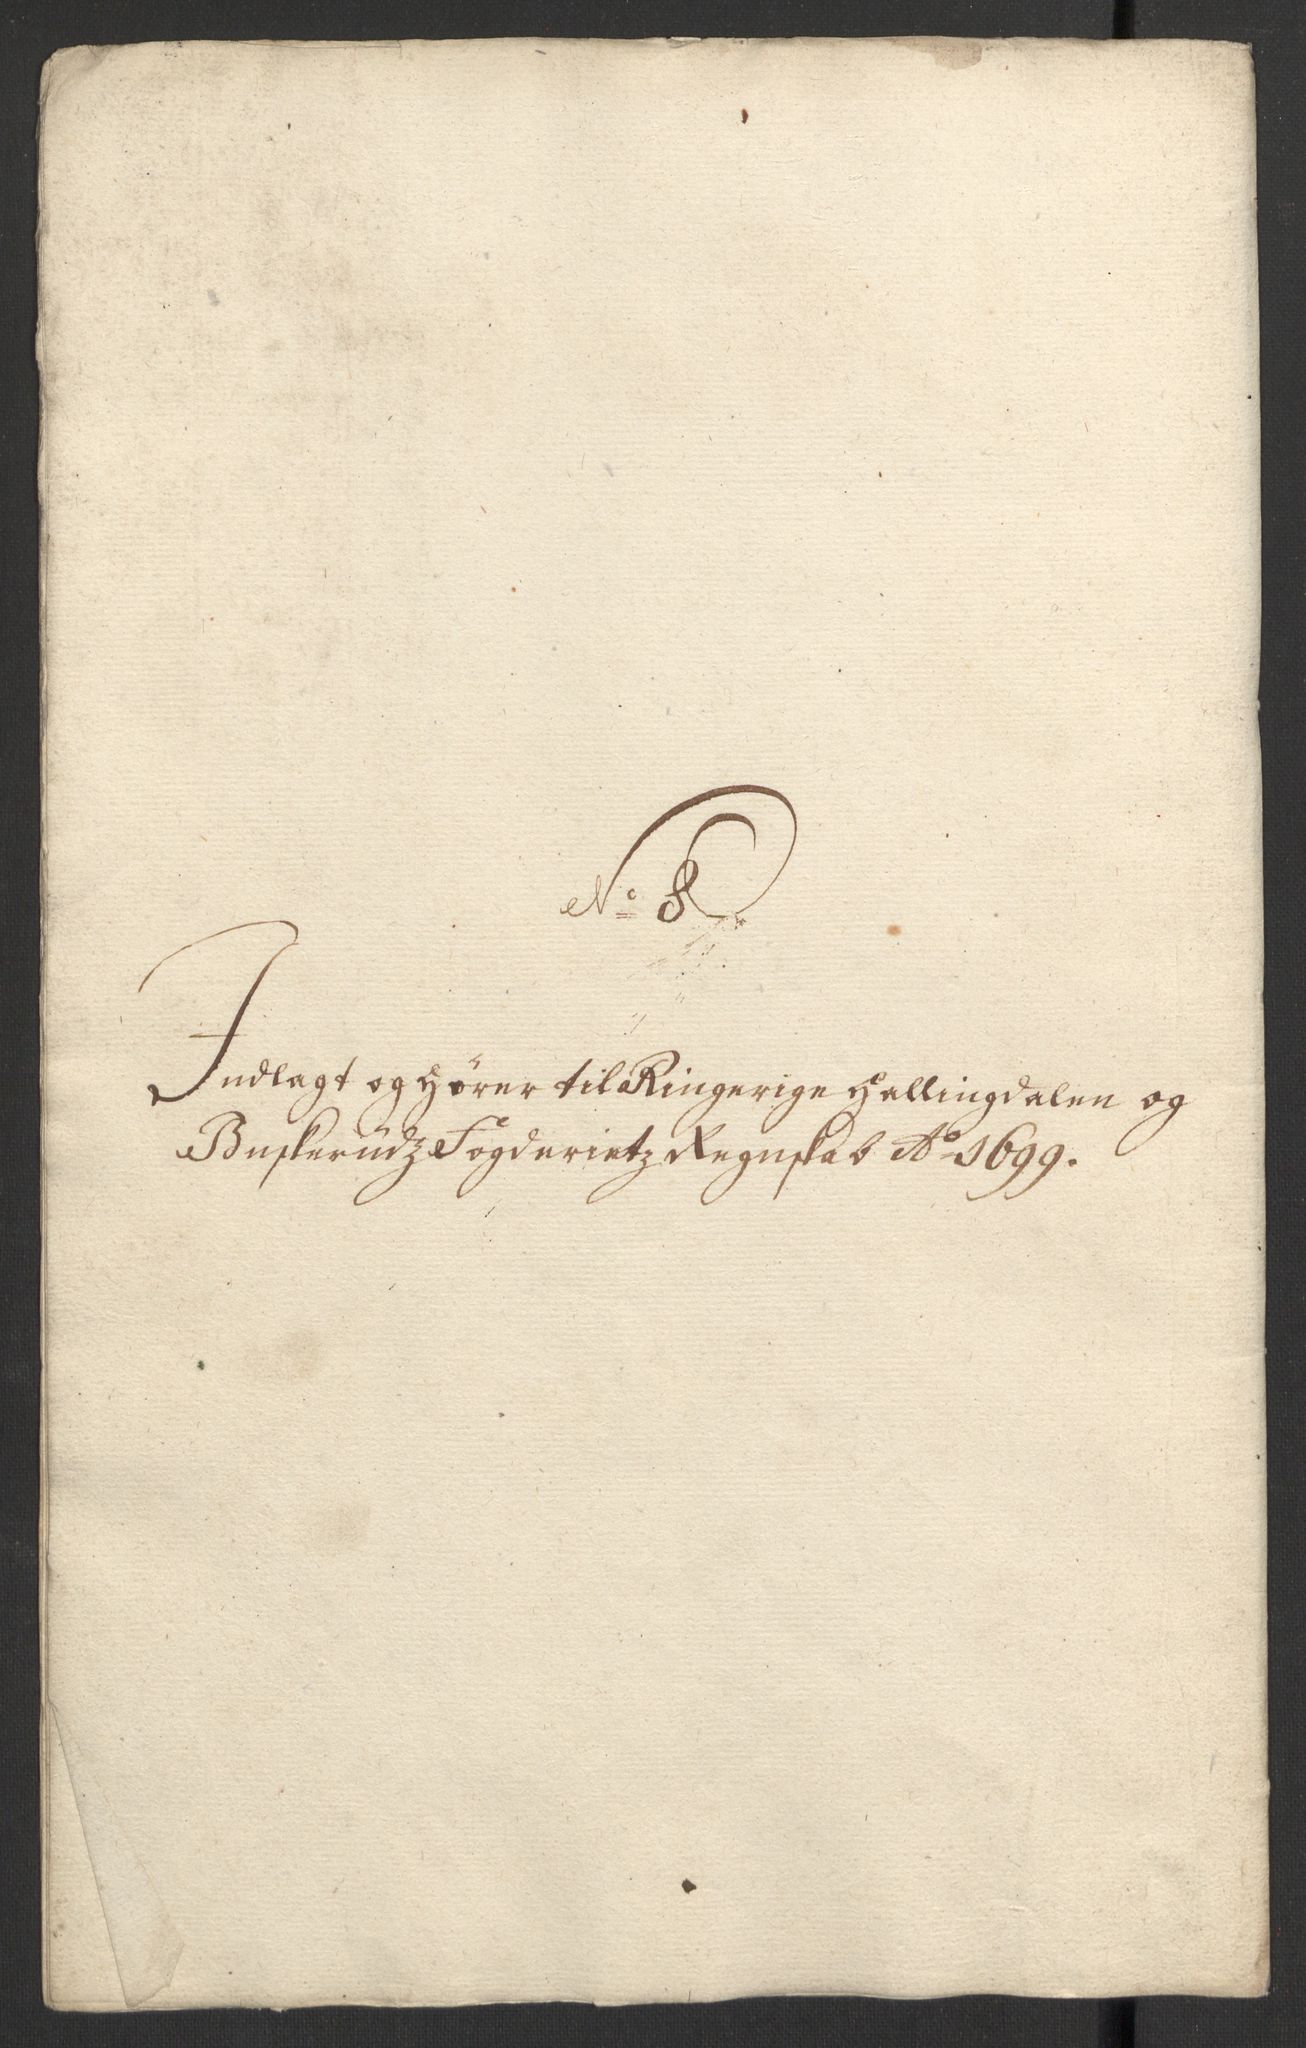 No 8
Indlagt og hører til Ringerige Hallingdalen og
Buskerudz Fogderietz Regnskab Ao 1699.